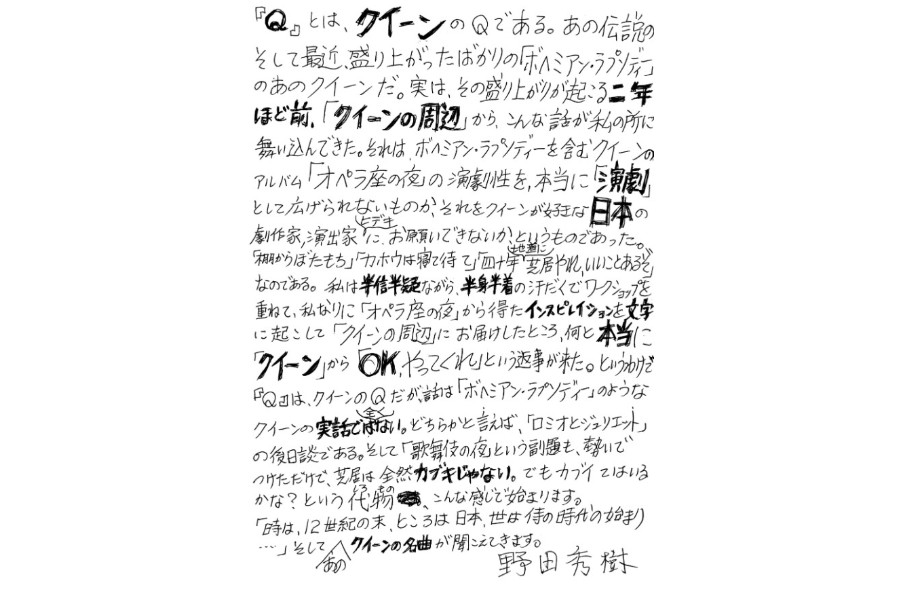 『Q』とは、クイーンのQである。あの伝説の
そして最近、盛り上がったばかりの「ボヘミアン・ラプソディー」
のあのクイーンだ。実は、その盛り上がりが起こる二年
ほど前、「クイーンの周辺」から、こんな話が私の所に
舞い込んできた。それは、ボヘミアン・ラプソディーを含むクイーンの
アルバム「オペラ座の夜」の演劇性を、本当に「演劇」
として広げられないものか、それをクイーンが好きな日本の
劇作家、演出家(ヒデキ)に、お願いできないか、というものであった。
「棚からぼたもち」「カホウは寝て待て」「四十年地道に芝居やれ、いいことあるぞ」
なのである。私は半信半疑ながら、半身半着の汗だくでワークショップを
重ねて、私なりに「オペラ座の夜」から得たインスピレイションを文字
に起こして「クイーンの周辺」にお届けしたところ、何と本当に
「クイーン」から「OK、やってくれ」という返事が来た。というわけで
『Q』は、クイーンのQだが、話は「ボヘミアン・ラプソディー」のような
クイーンの実話では全くない。どちらかと言えば、「ロミオとジュリエット」
の後日談である。そして「歌舞伎の夜」という副題も、勢いで
つけただけで、芝居は全然カブキじゃない。でもカブイてはいる
かな?という代物、こんな感じで始まります。
「時は、12世紀の末、ところは日本、世は侍の時代の始まり
…」そしてあのクイーンの名曲が聞こえてきます。
野田秀樹